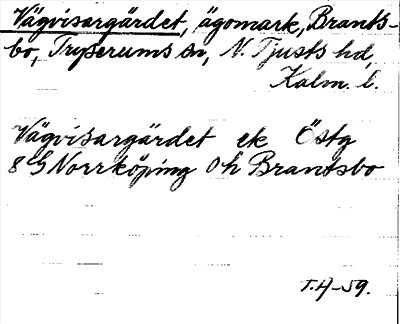 Vägvisargärdet, ägomark, Brants-
bo, Tryserums sn, N. Tjusts hd,
Kalm. l.
Vägvisargärdet ek Östg
8 G Norrköping 0 h Brantsbo
T.A-59.